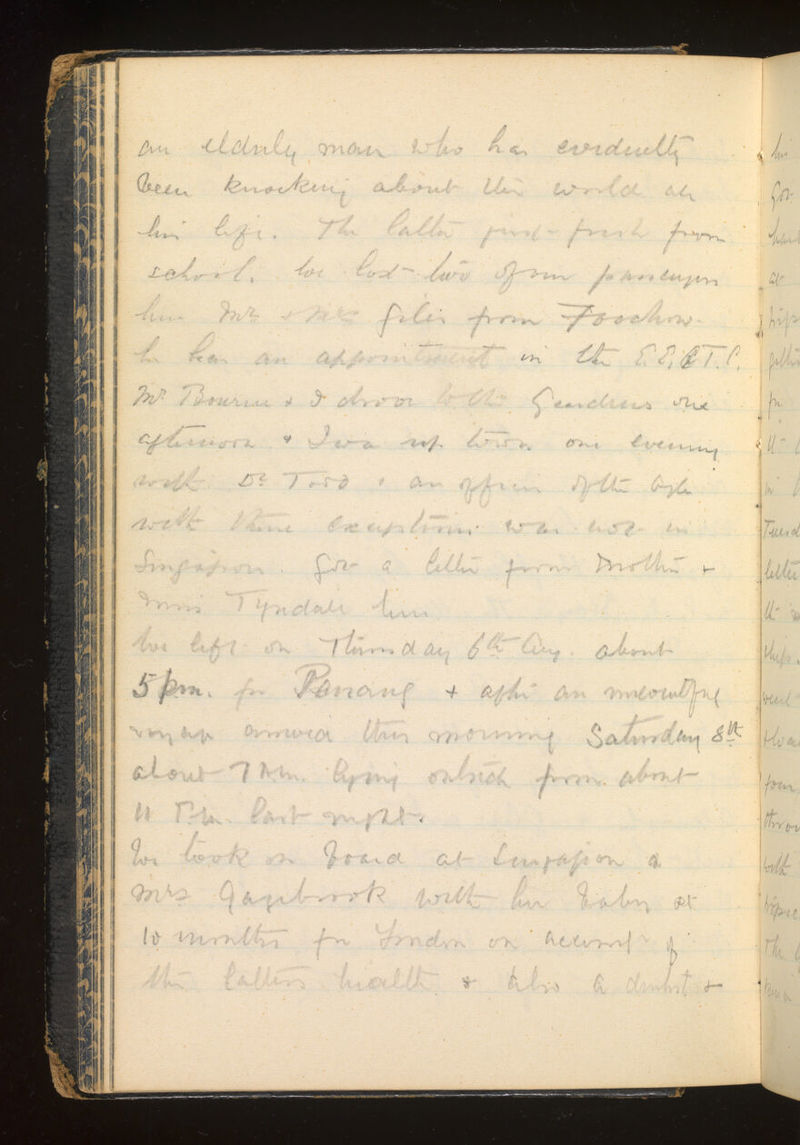 an elderly man who has evidently
been knocking about the world all
his life. The latter just fresh from
school. We lost two of our passengers
here Mr & Mrs Giles from Foochow.
he has an appointment in the E.E.&T.C.
Mr Bourne & I drove to the Gardens one
afternoon & I was up town one evening
with Dr Todd & an officer of the
with these exceptions was not in
Singapore. Got a letter from Mother &
Miss Tyndale here
We left on Thursday 6th Aug. about
5 p.m. for Penang & after an uneventful
voyage arrived this morning Saturday 8th
about 7 A.m. lying outside from about
11 P.m. last night.
We took on board at Singapore a
Mrs Gazebrook with her baby at
10 months for London on account of
the latters health & also a &